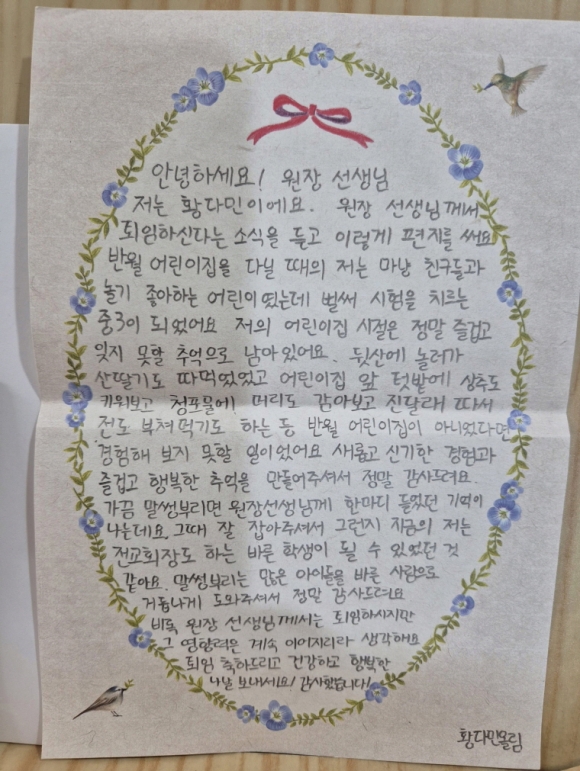 안녕하세요! 원장 선생님
저는 황다민이에요. 원장 선생님께서
퇴임하신다는 소식을 듣고 이렇게 편지를 써요
반월 어린이집을 다닐 때의 저는 마냥 친구들과
놀기 좋아하는 어린이였는데 벌써 시험을 치르는
중3이 되었어요 저의 어린이집 시절은 정말 즐겁고
잊지 못할 추억으로 남아있어요. 뒷산에 놀러가
산딸기도 따먹었었고 어린이집 앞 텃밭에 상추도
키워보고 청포물에! 머리도 감아보고 진달래 따서
전도 부쳐먹기도 하는 등 반월 어린이집이 아니었다면
경험해 보지 못할 일이었어요 새롭고 신기한 경험과
즐겁고 행복한 추억을 만들어주셔서 정말 감사드려요.
가끔 말썽부리면 원장선생님께 한마디 들었던 기억이
나는데요 그때 잘 잡아주셔서 그런지 지금의 저는
전교회장도 하는 바른 학생이 될 수 있었던 것
같아요. 말썽부리는 많은 아이들을 바른 사람으로
거듭나게 도와주셔서 정말 감사드려요
비록 원장 선생님께서는 퇴임하시지만
그 영향력은 계속 이어지리라 생각해요
퇴임 축하드리고 건강하고 행복한
나날 보내세요! 감사했습니다!
황다민올림